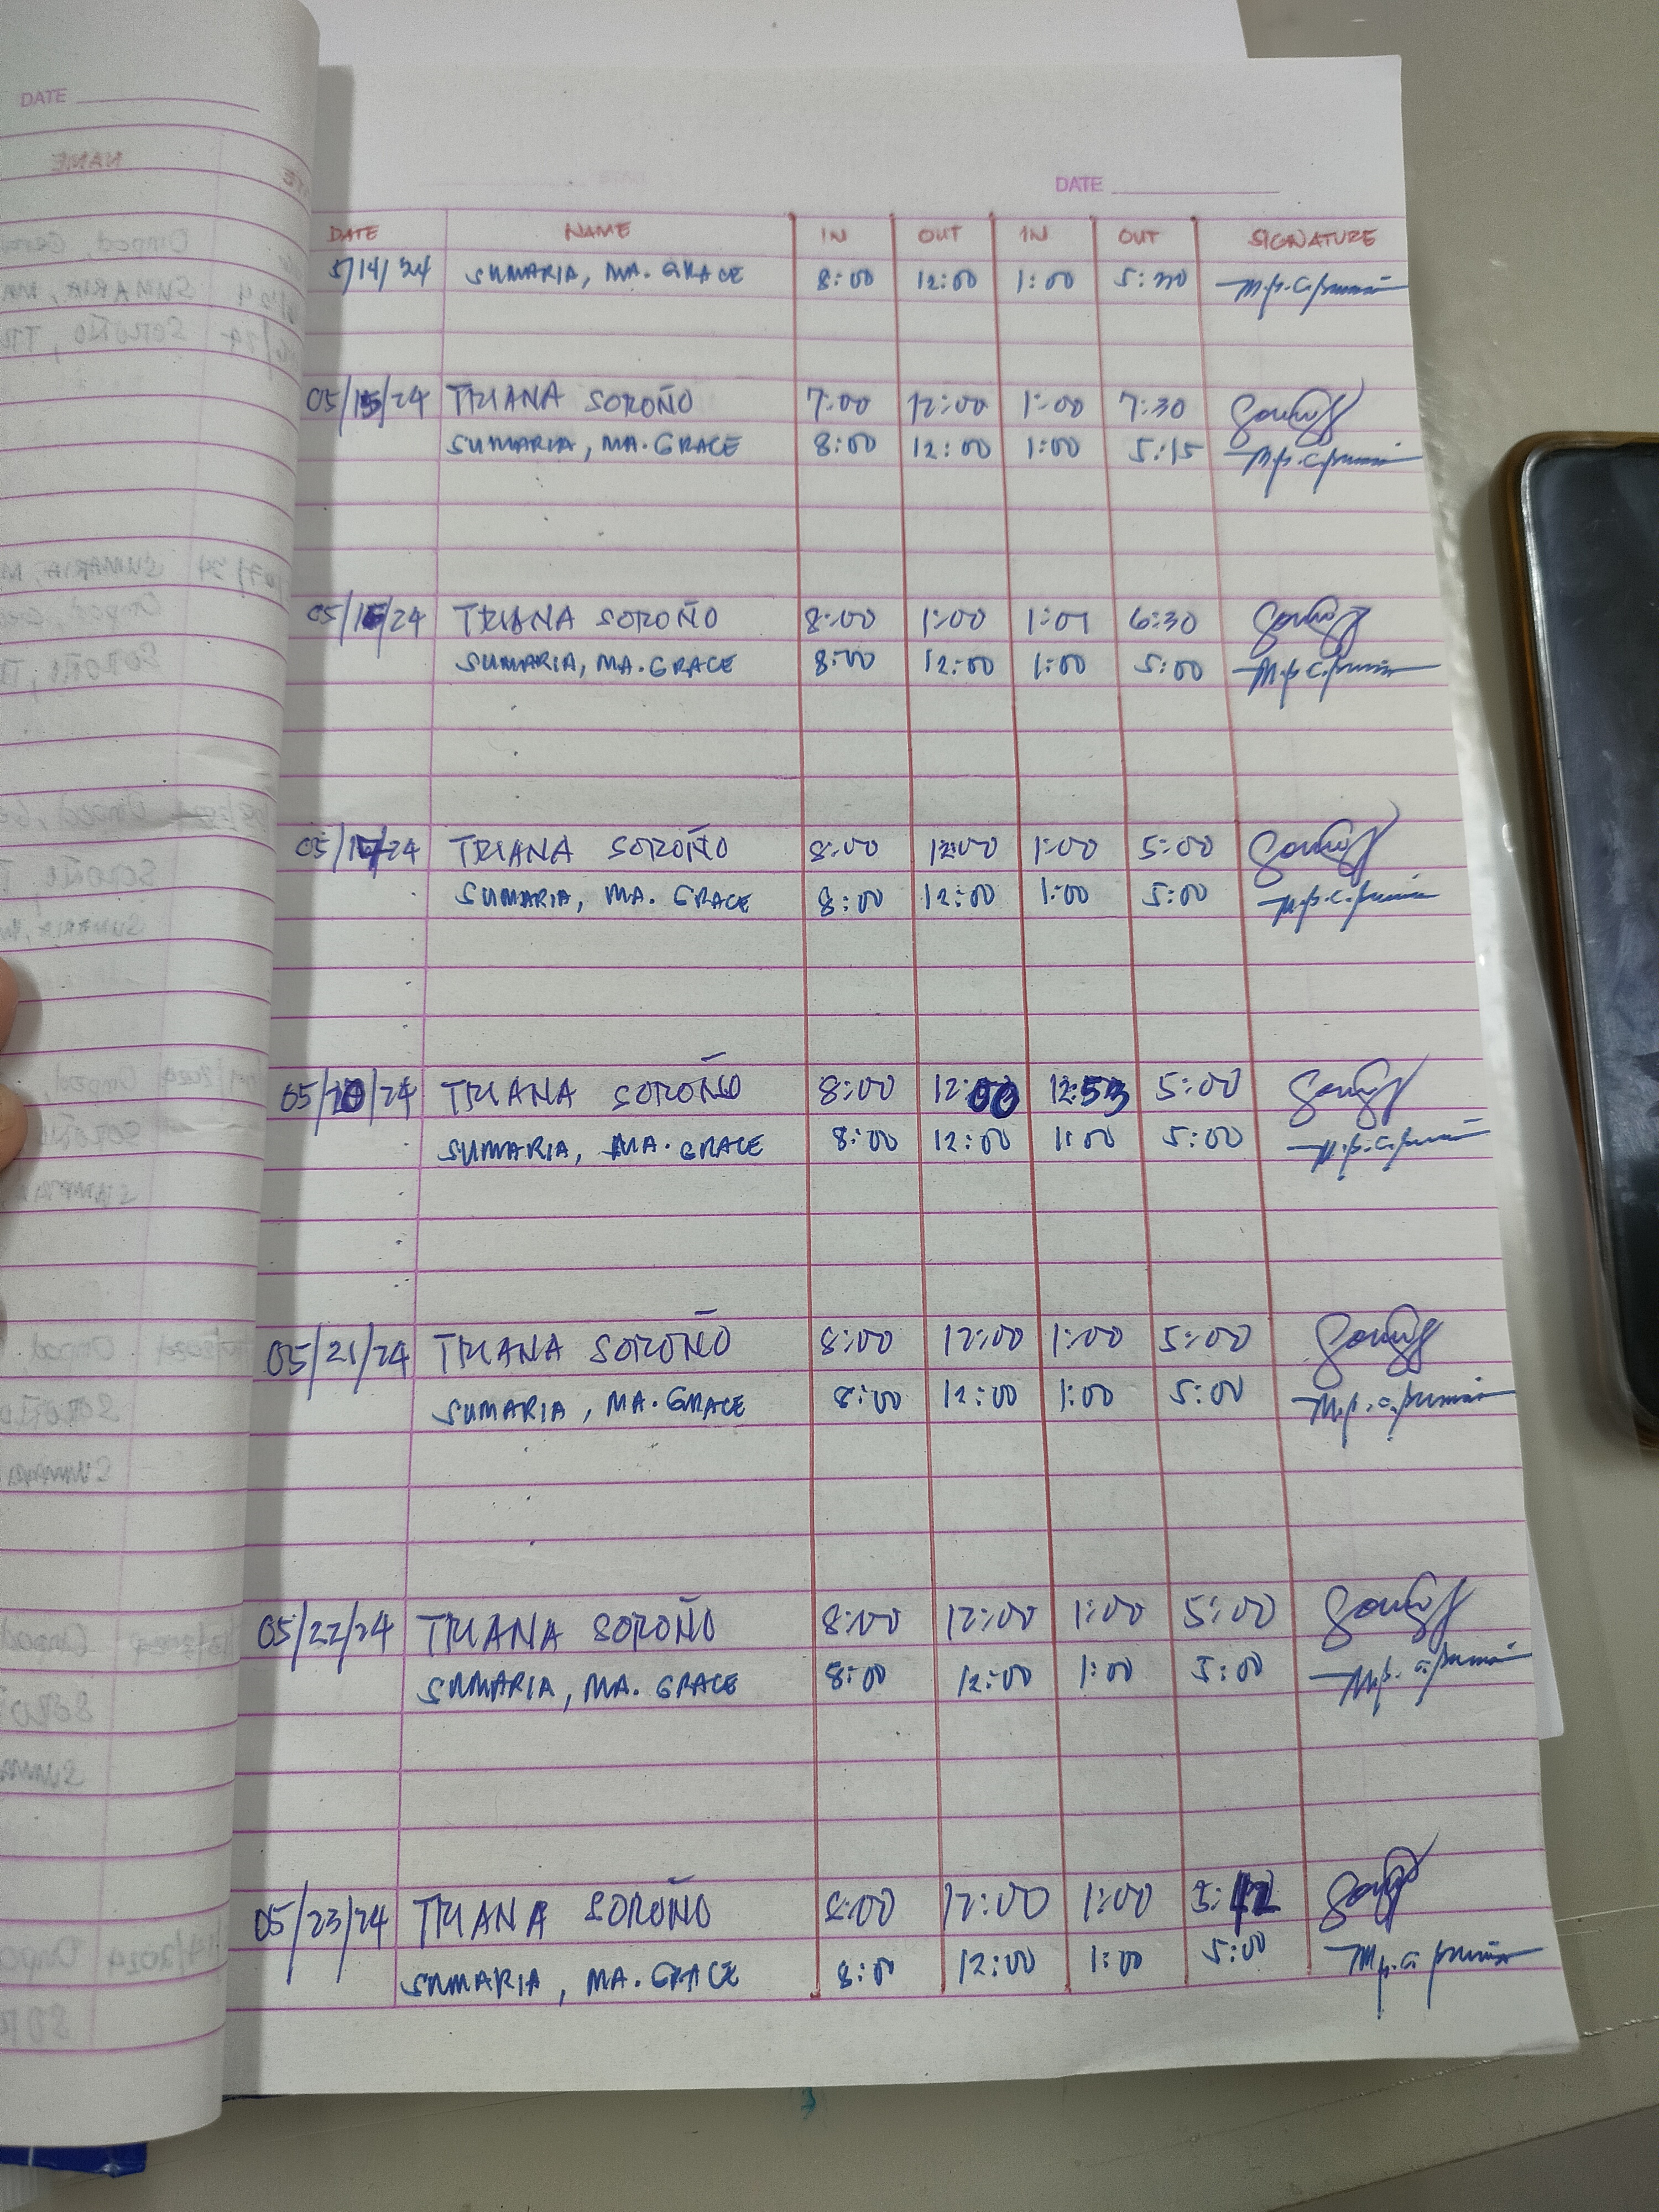 DATE
NAME
DATE
DATE NAME IN OUT IN OUT SIGNATURE
5/14/24 SUMARIA, MA. GRACE 8:00 12:00 1:00 5:30
05/15/24 TRIANA SOROÑO 7:00 12:00 1:00 7:30
SUMARIA, MA. GRACE 8:00 12:00 1:00 5:15
05/16/24 TRIANA SOROÑO 8:00 1:00 1:01 6:30
SUMARIA, MA. GRACE 8:00 12:00 1:00 5:00
05/17/24 TRIANA SOROÑO 8:00 12:00 1:00 5:00
SUMARIA, MA. GRACE 8:00 12:00 1:00 5:00
05/20/24 TRIANA SOROÑO 8:00 12:00 12:53 5:00
SUMARIA, MA. GRACE 8:00 12:00 1:00 5:00
05/21/24 TRIANA SOROÑO 8:00 12:00 1:00 5:00
SUMARIA, MA. GRACE 8:00 12:00 1:00 5:00
05/22/24 TRIANA SOROÑO 8:00 12:00 1:00 5:00
SUMARIA, MA. GRACE 8:00 12:00 1:00 5:00
05/23/24 TRIANA SOROÑO 8:00 12:00 1:00 5:12
SUMARIA, MA. GRACE 8:00 12:00 1:00 5:00